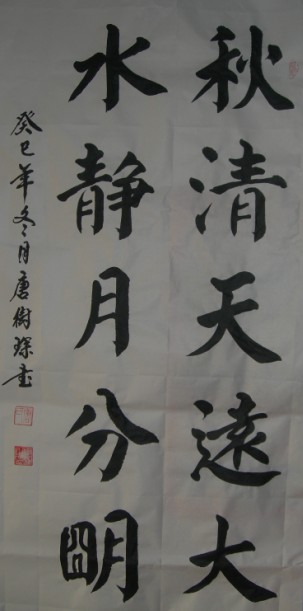 秋清天遠大
水静月分朙
癸巳年冬月唐樹琛書